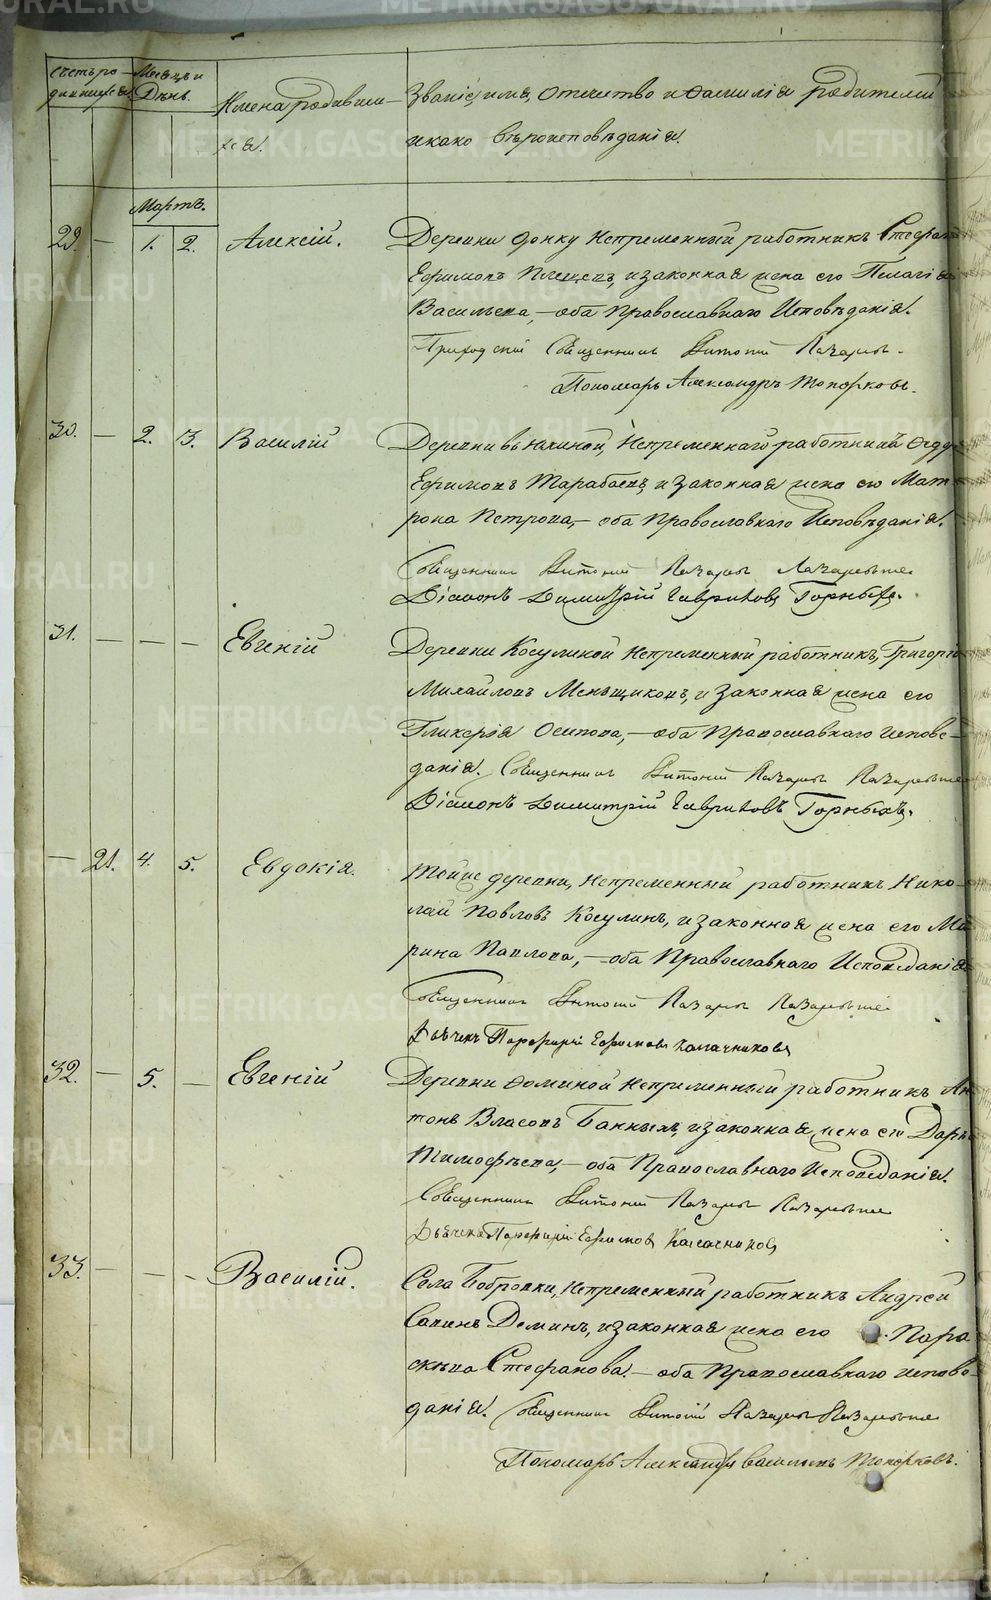 Счетъ ро-
дившихся.
Месяцъ и
День.
Имена родивши-
хся.
Званіе, имя, отечество и фамилія родителей
и како вѣроисповѣданія.
Мартъ.
29. — 1. 2. Алексій. Деревни Фонку непременный работникъ Стефанъ
Ефимовъ Плещевъ, и законная жена его Пелагія
Васильева, — оба Православнаго Исповѣданія.
Приходскій Священникъ Антоній Лазаревъ
Пономарь Александръ Топорковъ.
30. — 2. 3. Василій Деревни Вьюхиной, Непременнаго работникъ Федоръ
Ефимовъ Тарабаевъ, и законная жена его Мат-
рона Петрова, — оба Православнаго Исповѣданія.
Священникъ Антоній Лазаревъ Лазаревъ
Діаконъ Димитрій Гавриловъ Горныхъ.
31. — — — Евгеній Деревни Косулиной Непременный работникъ, Григорій
Михайловъ Меньщиковъ, и законная жена его
Гликерія Осипова, — оба Православнаго испове-
данія. Священникъ Антоній Лазаревъ
Діаконъ Димитрій Гавриловъ Горныхъ.
— 21. 4. 5. Евдокія. Тойже деревни, Непременный работникъ Нико-
лай Павловъ Косулинъ, и законная жена его Ма-
рина Павлова, — оба Православнаго Исповеданія
Священникъ Антоній Лазаревъ
Дьячекъ Порфирій Ефимовъ Калачниковъ
32. — 5. — Евгеній Деревни Фоминой Непременный работникъ Ан-
тонъ Власовъ Банныхъ, и законная жена его Дарья
Тимофѣева, — оба Православнаго Исповеданія.
Священникъ Антоній Лазаревъ
Дьячекъ Порфирій Ефимовъ Калачниковъ
33. — — — Василій. Села Бобровки, Непременный работникъ Андрей
Савинъ Деминъ, и законная жена его Пара-
скѣва Стефанова. — оба Православнаго испове-
данія. Священникъ Антоній Лазаревъ
Пономарь Александръ Васильевъ Топорковъ.
METRIKI.GASO-URAL.RU